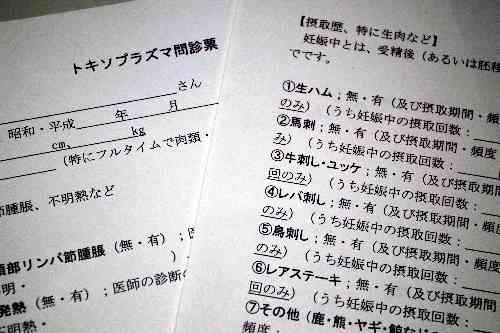 トキソプラズマ問診票
さん
昭和・平成 年 月
cm、 kg
(特にフルタイムで肉類・
節腫脹、不明熱など
頸部リンパ節腫脹(無・有);医
不明・ )
発熱(無・有);医師の診断の
不明・
【摂取歴、特に生肉など】
妊娠中とは、受精後(あるいは胚移
でです。
①生ハム;無・有(及び摂取期間・頻
のみ)(うち妊娠中の摂取回数:
②馬刺;無・有(及び摂取期間・頻度
のみ)(うち妊娠中の摂取回数:
③牛刺し・ユッケ;無・有(及び摂
回のみ)(うち妊娠中の摂取回数:
④レバ刺し;無・有(及び摂取期間・
のみ)(うち妊娠中の摂取回数:
⑤鳥刺し;無・有(及び摂取期間・頻
のみ)(うち妊娠中の摂取回数:
⑥レアステーキ;無・有(及び摂取
回のみ)(うち妊娠中の摂取回数:
⑦その他(鹿・熊・ヤギ・鯨など
頻度: